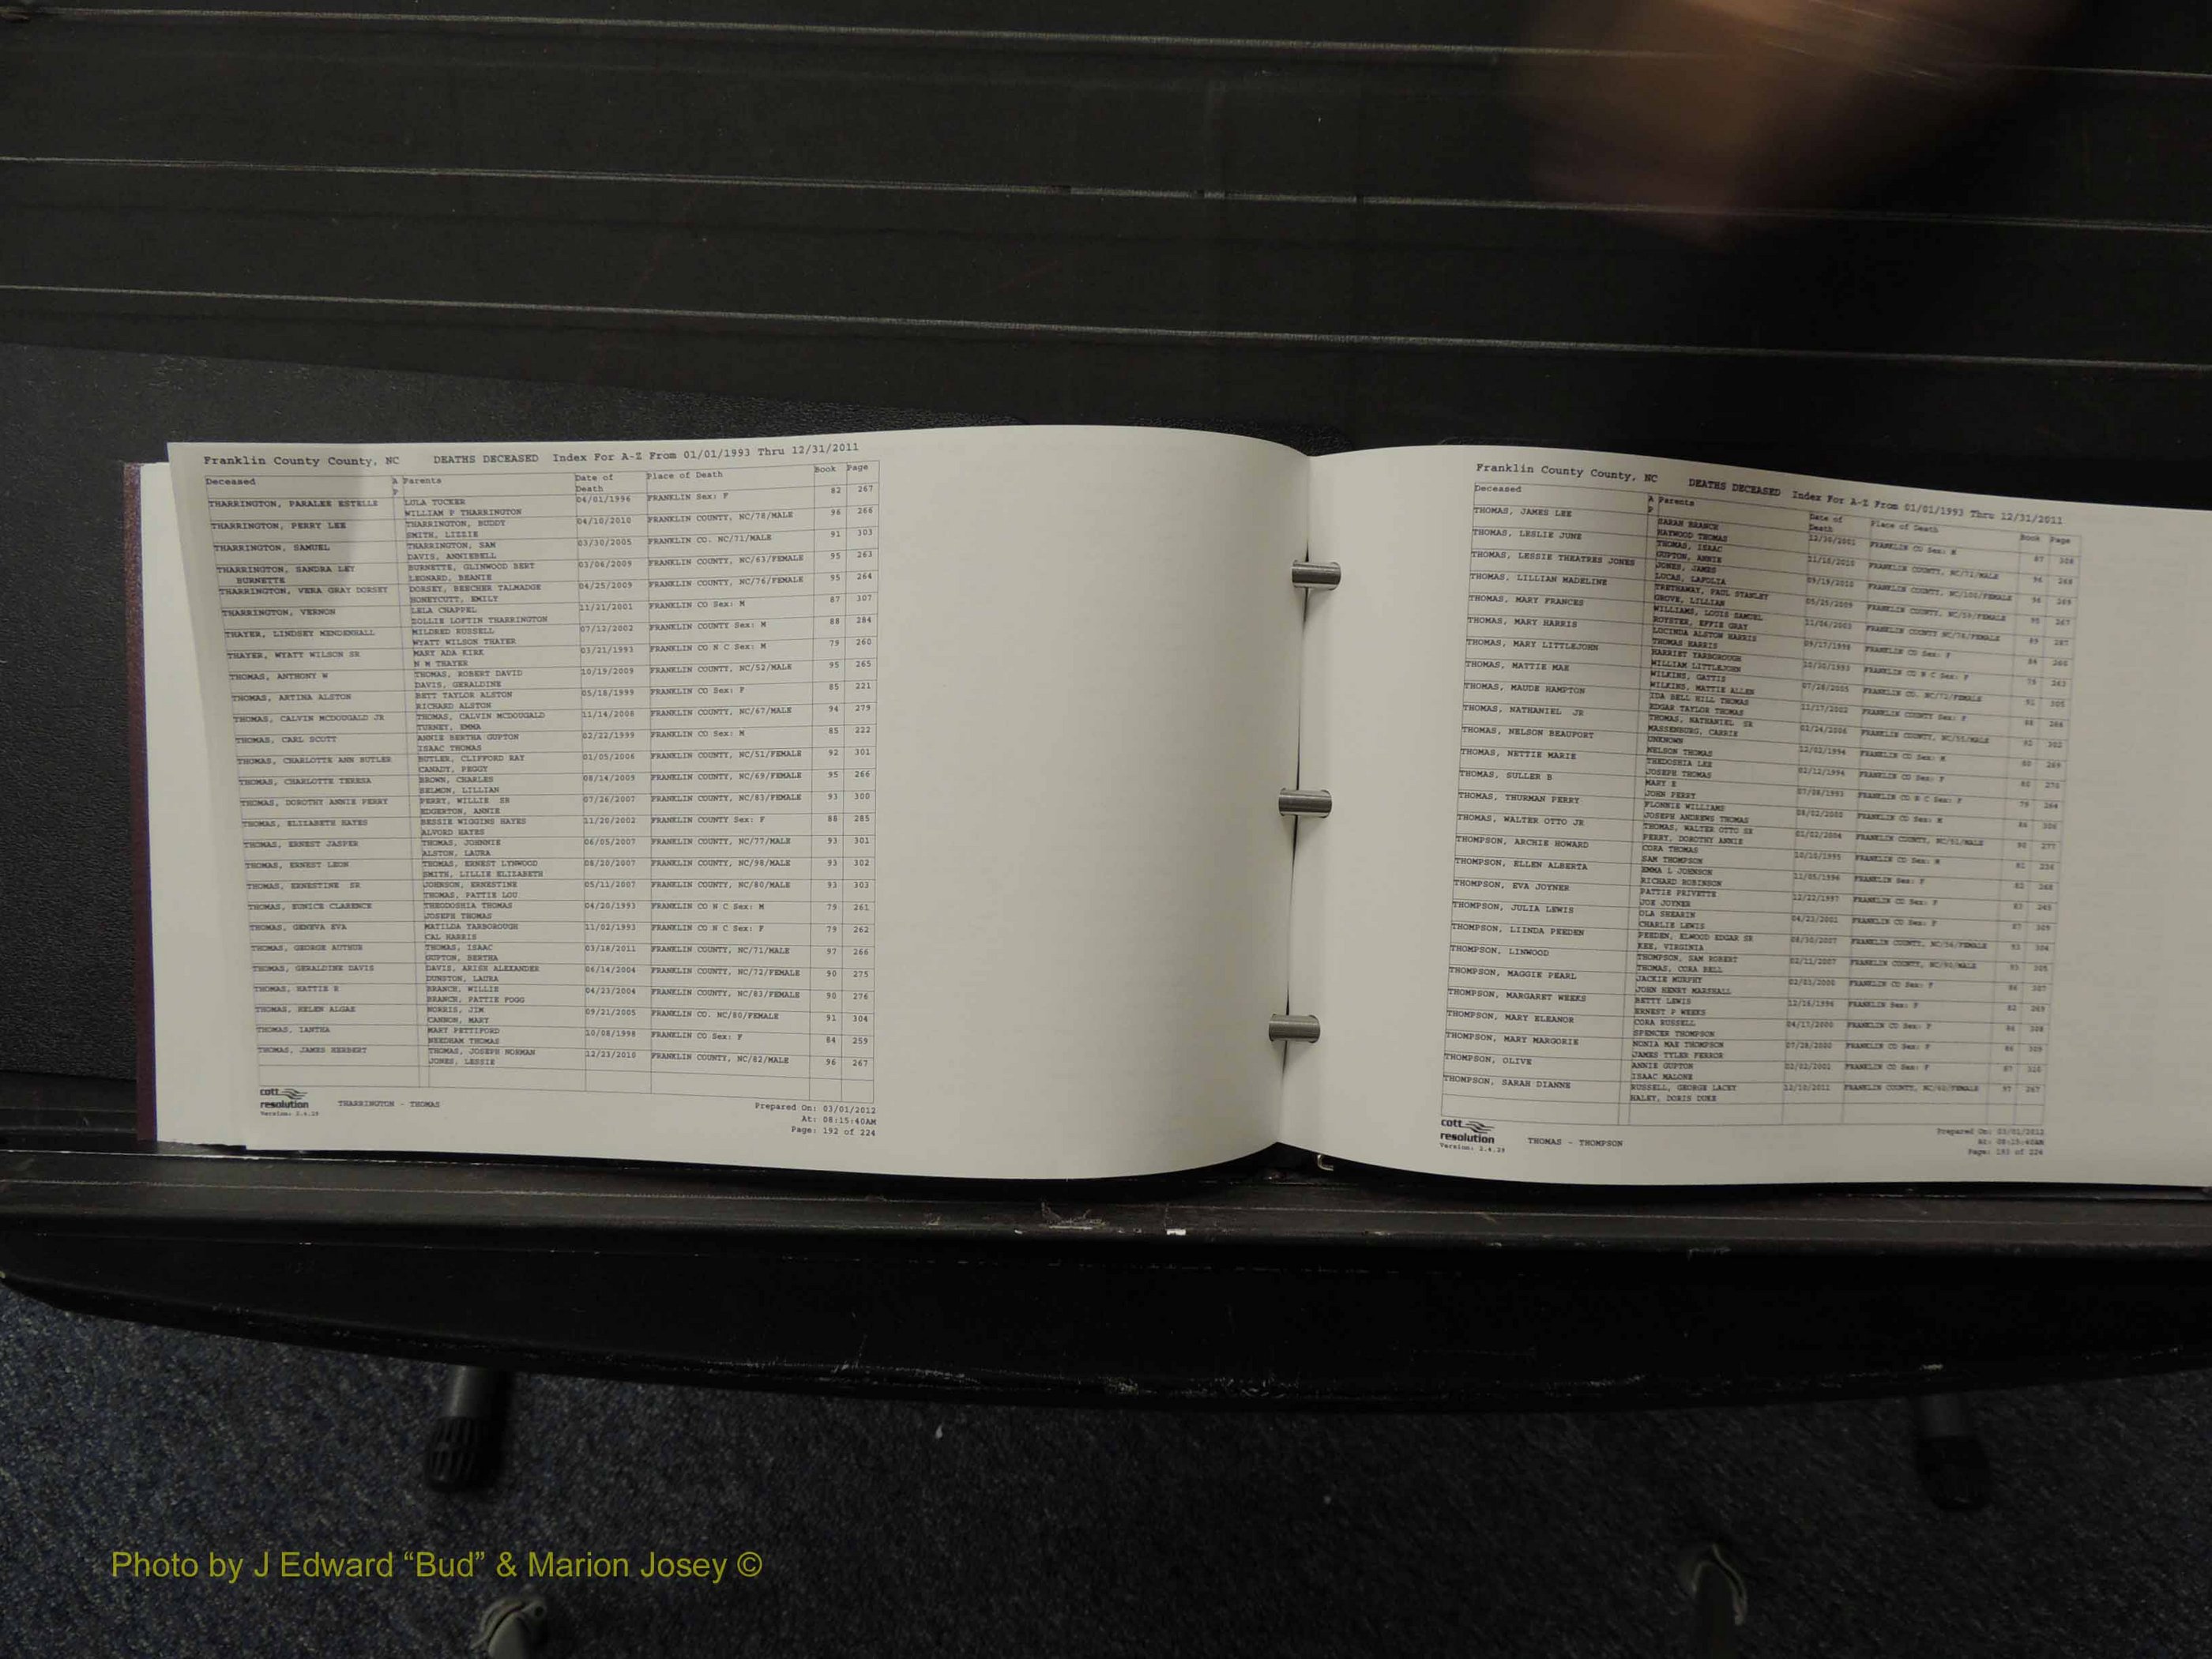 Franklin County County, NC DEATHS DECEASED Index For A-Z From 01/01/1993 Thru 12/31/2011
Deceased A Parents Date of Place of Death Book Page
P Death
THARRINGTON, PARALEE ESTELLE LULA TUCKER 04/01/1996 FRANKLIN Sex: F 82 267
WILLIAM P THARRINGTON
THARRINGTON, PERRY LEE THARRINGTON, BUDDY 04/10/2010 FRANKLIN COUNTY, NC/78/MALE 96 266
SMITH, LIZZIE
THARRINGTON, SAMUEL THARRINGTON, SAM 03/30/2005 FRANKLIN CO. NC/71/MALE 91 303
DAVIS, ANNIEBELL
THARRINGTON, SANDRA LEY BURNETTE, GLINWOOD BERT 03/06/2009 FRANKLIN COUNTY, NC/63/FEMALE 95 263
BURNETTE LEONARD, BEANIE
THARRINGTON, VERA GRAY DORSEY DORSEY, BEECHER TALMADGE 04/25/2009 FRANKLIN COUNTY, NC/76/FEMALE 95 264
HONEYCUTT, EMILY
THARRINGTON, VERNON LELA CHAPPEL 11/21/2001 FRANKLIN CO Sex: M 87 307
ZOLLIE LOFTIN THARRINGTON
THAYER, LINDSEY MENDENHALL MILDRED RUSSELL 07/12/2002 FRANKLIN COUNTY Sex: M 88 284
WYATT WILSON THAYER
THAYER, WYATT WILSON SR MARY ADA KIRK 03/21/1993 FRANKLIN CO N C Sex: M 79 260
N M THAYER
THOMAS, ANTHONY W THOMAS, ROBERT DAVID 10/19/2009 FRANKLIN COUNTY, NC/52/MALE 95 265
DAVIS, GERALDINE
THOMAS, ARTINA ALSTON BETT TAYLOR ALSTON 05/18/1999 FRANKLIN CO Sex: F 85 221
RICHARD ALSTON
THOMAS, CALVIN MCDOUGALD JR THOMAS, CALVIN MCDOUGALD 11/14/2008 FRANKLIN COUNTY, NC/67/MALE 94 279
TURNEY, EMMA
THOMAS, CARL SCOTT ANNIE BERTHA GUPTON 02/22/1999 FRANKLIN CO Sex: M 85 222
ISAAC THOMAS
THOMAS, CHARLOTTE ANN BUTLER BUTLER, CLIFFORD RAY 01/05/2006 FRANKLIN COUNTY, NC/51/FEMALE 92 301
CANADY, PEGGY
THOMAS, CHARLOTTE TERESA BROWN, CHARLES 08/14/2009 FRANKLIN COUNTY, NC/69/FEMALE 95 266
BELMON, LILLIAN
THOMAS, DOROTHY ANNIE PERRY PERRY, WILLIE SR 07/26/2007 FRANKLIN COUNTY, NC/83/FEMALE 93 300
EDGERTON, ANNIE
THOMAS, ELIZABETH HAYES BESSIE WIGGINS HAYES 11/20/2002 FRANKLIN COUNTY Sex: F 88 285
ALVORD HAYES
THOMAS, ERNEST JASPER THOMAS, JOHNNIE 06/05/2007 FRANKLIN COUNTY, NC/77/MALE 93 301
ALSTON, LAURA
THOMAS, ERNEST LEON THOMAS, ERNEST LYNWOOD 08/20/2007 FRANKLIN COUNTY, NC/98/MALE 93 302
SMITH, LILLIE ELIZABETH
THOMAS, ERNESTINE SR JOHNSON, ERNESTINE 05/11/2007 FRANKLIN COUNTY, NC/80/MALE 93 303
THOMAS, PATTIE LOU
THOMAS, EUNICE CLARENCE THEODOSHIA THOMAS 04/20/1993 FRANKLIN CO N C Sex: M 79 261
JOSEPH THOMAS
THOMAS, GENEVA EVA MATILDA YARBOROUGH 11/02/1993 FRANKLIN CO N C Sex: F 79 262
CAL HARRIS
THOMAS, GEORGE AUTHUR THOMAS, ISAAC 03/18/2011 FRANKLIN COUNTY, NC/71/MALE 97 266
GUPTON, BERTHA
THOMAS, GERALDINE DAVIS DAVIS, ARISH ALEXANDER 06/14/2004 FRANKLIN COUNTY, NC/72/FEMALE 90 275
DUNSTON, LAURA
THOMAS, HATTIE R BRANCH, WILLIE 04/23/2004 FRANKLIN COUNTY, NC/83/FEMALE 90 276
BRANCH, PATTIE FOGG
THOMAS, HELEN ALGAE NORRIS, JIM 09/21/2005 FRANKLIN CO. NC/80/FEMALE 91 304
CANNON, MARY
THOMAS, IANTHA MARY PETTIFORD 10/08/1998 FRANKLIN CO Sex: F 84 259
NEEDHAM THOMAS
THOMAS, JAMES HERBERT THOMAS, JOSEPH NORMAN 12/23/2010 FRANKLIN COUNTY, NC/82/MALE 96 267
JONES, LESSIE
cott
resolution THARRINGTON - THOMAS Prepared On: 03/01/2012
Version: 2.4.19 At: 08:15:40AM
Page: 192 of 224
Franklin County County, NC DEATHS DECEASED Index For A-Z From 01/01/1993 Thru 12/31/2011
Deceased A Parents Date of Place of Death Book Page
P Death
THOMAS, JAMES LEE SARAH BRANCH 12/30/2001 FRANKLIN CO Sex: M 87 308
HAYWOOD THOMAS
THOMAS, LESLIE JUNE THOMAS, ISAAC 11/10/2010 FRANKLIN COUNTY, NC/71/MALE 96 268
GUPTON, ANNIE
THOMAS, LESSIE THEATRES JONES JONES, JAMES 09/19/2010 FRANKLIN COUNTY, NC/100/FEMALE 96 269
LUCAS, LAFOLIA
THOMAS, LILLIAN MADELINE TRETHAWAY, PAUL STANLEY 05/25/2009 FRANKLIN COUNTY, NC/59/FEMALE 95 267
GROVE, LILLIAN
THOMAS, MARY FRANCES WILLIAMS, LOUIS SAMUEL 11/06/2003 FRANKLIN COUNTY NC/78/FEMALE 89 287
ROYSTER, EFFIE GRAY
THOMAS, MARY HARRIS LUCINDA ALSTON HARRIS 09/17/1998 FRANKLIN CO Sex: F 84 260
THOMAS HARRIS
THOMAS, MARY LITTLEJOHN HARRIET YARBOROUGH 10/30/1993 FRANKLIN CO N C Sex: F 79 263
WILLIAM LITTLEJOHN
THOMAS, MATTIE MAE WILKINS, GATTIS 07/28/2005 FRANKLIN CO. NC/72/FEMALE 91 305
WILKINS, MATTIE ALLEN
THOMAS, MAUDE HAMPTON IDA BELL HILL THOMAS 11/17/2002 FRANKLIN COUNTY Sex: F 88 286
EDGAR TAYLOR THOMAS
THOMAS, NATHANIEL JR THOMAS, NATHANIEL SR 02/24/2006 FRANKLIN COUNTY, NC/55/MALE 92 302
MASSENBURG, CARRIE
THOMAS, NELSON BEAUFORT UNKNOWN 12/02/1994 FRANKLIN CO Sex: M 80 269
NELSON THOMAS
THOMAS, NETTIE MARIE THEDOSHIA LEE 02/12/1994 FRANKLIN CO Sex: F 80 270
JOSEPH THOMAS
THOMAS, SULLER B MARY E 07/08/1993 FRANKLIN CO N C Sex: F 79 264
JOHN PERRY
THOMAS, THURMAN PERRY FLONNIE WILLIAMS 08/02/2000 FRANKLIN CO Sex: M 86 306
JOSEPH ANDREWS THOMAS
THOMAS, WALTER OTTO JR THOMAS, WALTER OTTO SR 01/02/2004 FRANKLIN COUNTY, NC/51/MALE 90 277
PERRY, DOROTHY ANNIE
THOMPSON, ARCHIE HOWARD CORA THOMAS 10/10/1995 FRANKLIN CO Sex: M 81
SAM THOMPSON
THOMPSON, ELLEN ALBERTA EMMA L JOHNSON 11/05/1996 FRANKLIN Sex: F 82 268
RICHARD ROBINSON
THOMPSON, EVA JOYNER PATTIE PRIVETTE 12/22/1997 FRANKLIN CO Sex: F 83
JOE JOYNER
THOMPSON, JULIA LEWIS OLA SHEARIN 04/23/2001 FRANKLIN CO Sex: F 87 309
CHARLIE LEWIS
THOMPSON, LIINDA PEEDEN PEEDEN, ELWOOD EDGAR SR 08/30/2007 FRANKLIN COUNTY, NC/56/FEMALE 93 304
KEE, VIRGINIA
THOMPSON, LINWOOD THOMPSON, SAM ROBERT 02/11/2007 FRANKLIN COUNTY, NC/90/MALE 93 305
THOMAS, CORA BELL
THOMPSON, MAGGIE PEARL JACKIE MURPHY 02/03/2000 FRANKLIN CO Sex: F 86 307
JOHN HENRY MARSHALL
THOMPSON, MARGARET WEEKS BETTY LEWIS 12/16/1996 FRANKLIN Sex: F 82 269
ERNEST P WEEKS
THOMPSON, MARY ELEANOR CORA RUSSELL 04/17/2000 FRANKLIN CO Sex: F 86 308
SPENCER THOMPSON
THOMPSON, MARY MARGORIE NONIA MAE THOMPSON 07/28/2000 FRANKLIN CO Sex: F 86 309
JAMES TYLER PERROR
THOMPSON, OLIVE ANNIE GUPTON 02/02/2001 FRANKLIN CO Sex: F 87 310
ISAAC MALONE
THOMPSON, SARAH DIANNE RUSSELL, GEORGE LACEY 12/10/2011 FRANKLIN COUNTY, NC/62/FEMALE 97 267
HALEY, DORIS DUKE
cott
resolution THOMAS - THOMPSON Prepared On: 03/01/2012
Version: 2.4.19 At: 08:15:40AM
Page: 193 of 224
Photo by J Edward “Bud” & Marion Josey ©